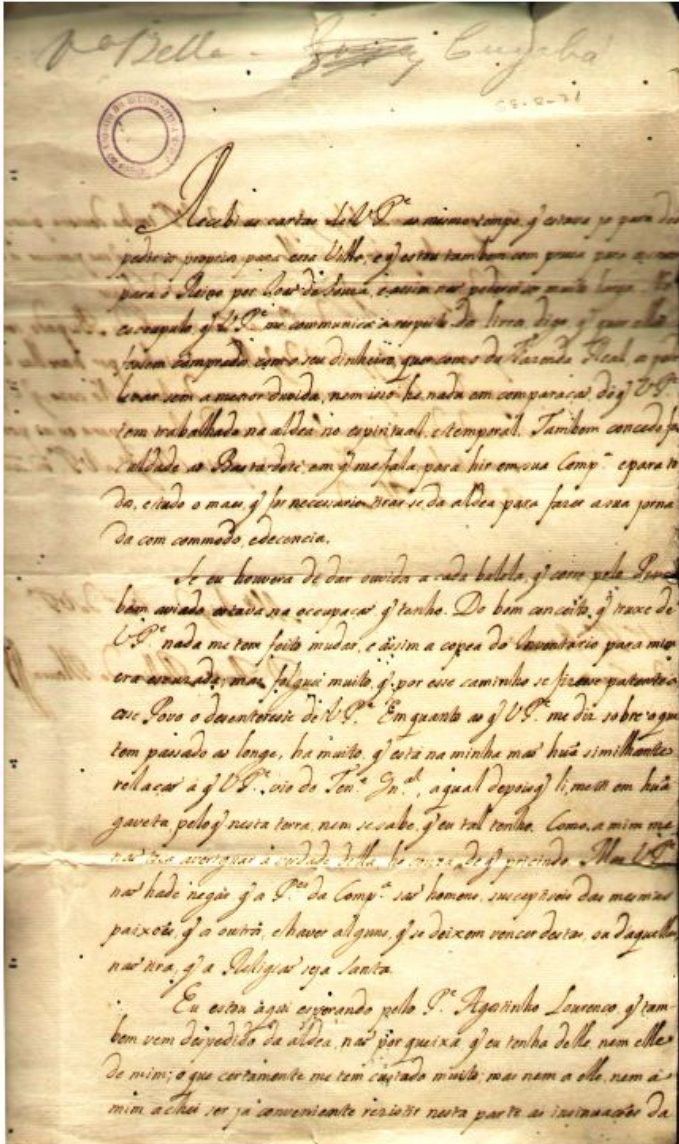 Va Bella - Cuyabá
Recebi as cartas de V.P.e ao mesmo tempo, q' estava ja para des
pedir os proprios para essa Villa, e q' estou tambem com pressa para
para o Reino por Goas da Souza, e assim nao poderei ser muito largo.
escrupulo, q' V.P.e me communica a respeito da livra, digo, q' quer ella
fossem comprados com o seu dinheiro, quer com o da Fazenda Real, as pode
levar sem a menor duvida, nem isso he nada em comparaçaõ do q' V.P.e
tem trabalhado na aldea no espiritual, e temporal. Tambem concedo fa
culdade ao Bastardote, em q' me fala, para hir em sua Comp.a e para to
do, e tudo o mais, q' for necessario tirar-se da aldea para fazer a sua jorna
da com commodo, e decencia.
Se eu houvera de dar ouvida a cada balela, q' corre pelo
bem aviado estava na occupaçaõ q' tenho. Do bom conceito, q' truxe de
V.P.e nada me tem feito mudar, e assim a copea do Inventario para mim
era escuzada; mas folguei muito, q' por esse caminho se fizesse patente a
esse Povo o desenteresse de V.P.e Em quanto ao q' V.P.e me diz sobre o que
tem passado ao longe, ha muito, q' está na minha maõ huã similhante
relaçaõ á q' V.P.e vio do Ten.e Gn.al, a qual depois q' li, metti em huã
gaveta, pelo q' nesta terra, nem se sabe, q' eu tal tenho. Como, a mim me
naõ toca averiguar a verdade della, he couza, de q' pricindo. Mas V.P.e
naõ hade negar q' a P.es da Comp.a saõ homens, susceptiveis das mesmas
paixões, q' a outra, e haver alguns, q' se deixem vencer destas, ou daquellas,
naõ tira, q' a Religiaõ seja Santa.
Eu estou aqui esperando pelo P.e Agostinho Lourenco, q' tam-
bem vem despedido da aldea, naõ por queixa q' eu tenha delle, nem elle
de mim; o que certamente me tem custado muito; mas nem a elle, nem a
mim achei ser já conveniente rezistir nesta parte as insinuações da